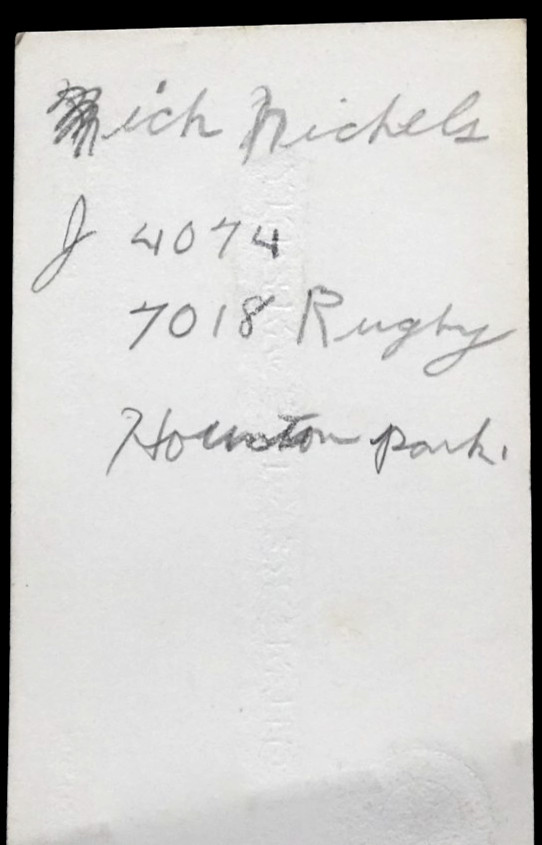 Nick Nichels
J 4074
7018 Rugby
Houston park.